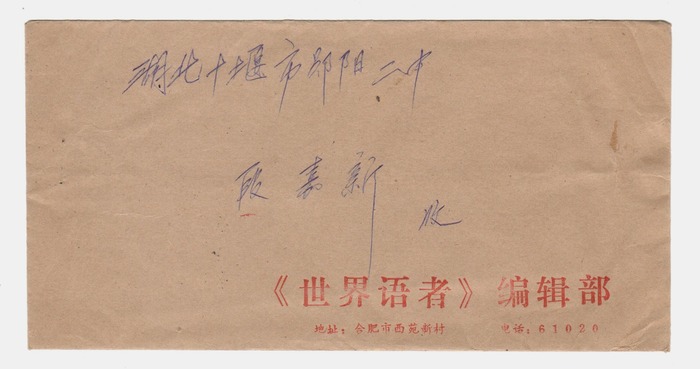 湖北十堰市郧阳二中
嘉新 收
《世界语者》编辑部
地址：合肥市西苑新村 电话：61020